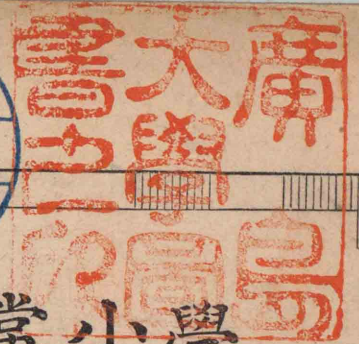 廣島
大學圖
書之印
常小學